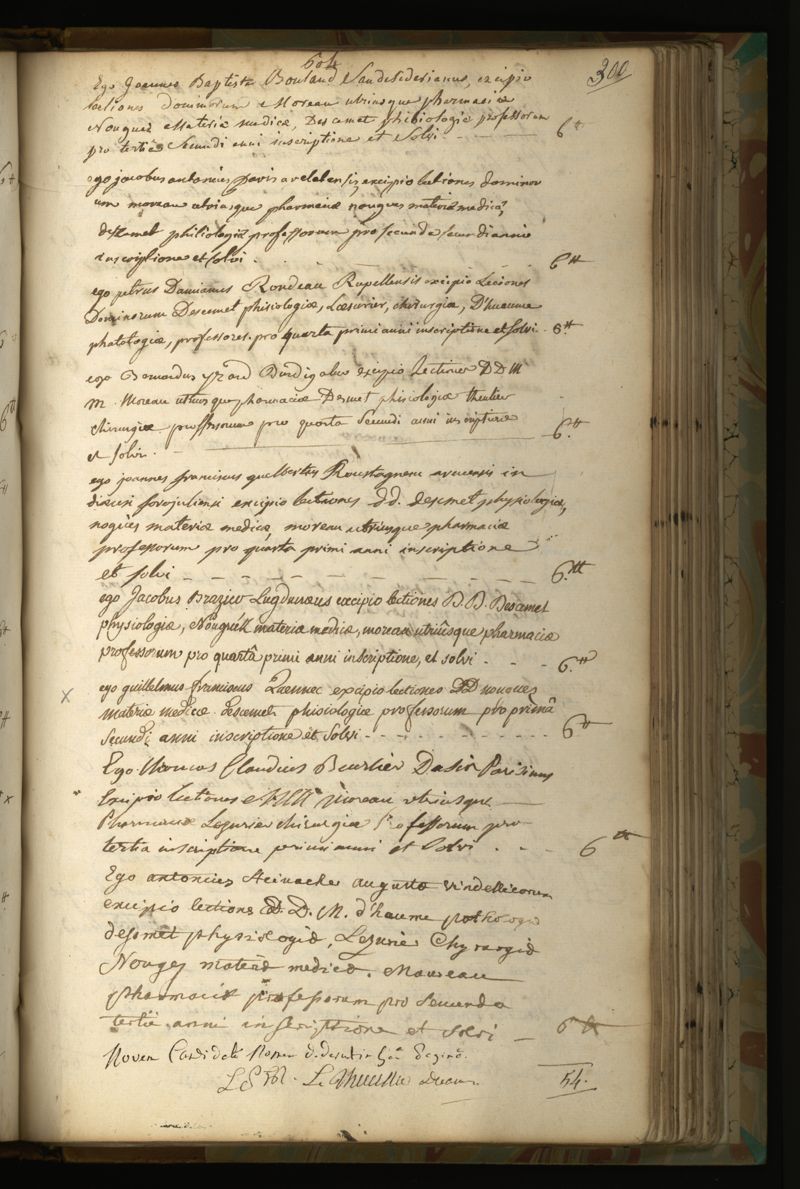 604
300
Ego Joannes Baptista Bouland Sandesiderianus, excipio
lectiones dominorum Moreau utriusque pharmaciæ
Nouguez Materiæ medicæ, Descemet phisiologiæ professorum
pro tertia Secundi anni inscriptione et Solvi. 6 ₶
ego jacobus antonius excipio lectiones dominor
um moreau utriusque pharmaciæ nougues materiæ medicæ,
descemet philiologiæ professorum pro secunda secundi anni
inscriptione et solvi . 6 ₶
ego petrus Damianus Rondeau Rupellensis excipio Leciones
Dominorum Descemet phisiologiæ, Lesurier, chirurgiæ, D'heaume
phatologiæ, professores. pro quarta primi anni inscriptione et solvi - 6 ₶
ego Bernardus Burdigalus excipio lectiones D D M
M. Moreau utriusque pharmaciæ Desmet phisiologiæ
chirurgiæ professorum pro quarta Secundi anni inscripture
et Solvi. 6. ₶
ego joannes franciscus quelbertus Roustagnenc in
diæcesi forojuliensi excipio lectiones dd. descmet physiologiæ,
nogues materiæ medicæ, moreau utriusque pharmaciæ
professorum pro quarta primi anni inscriptione
et solvi - - - - - - - - - - 6. ₶
ego Jacobus Brazier Lugdunæus excipio lectiones D. D. Descamet
physiologiæ, Nouguéz materia medicæ, moreau utriusque pharmaciæ
professorum pro quartâ primi anni inscriptione, et solvi - - - 6. ₶
x ego guillelmus franciscus Quennec excipio lectiones DD nougues
materiæ medicæ descemet phisiologiæ professorum pro primâ
secundi anni inscriptione et Solvi - - - - - - - - - - 6 ₶
Ego Nicolas Claudius Beurlier Parisinus
Excipio lectiones Moreau utriusque
Pharmaciæ Lesurier chirurgiæ Professorum pro
tertia inscriptione primi anni et Solvi . - - 6 ₶
Ego antonius augusta vindellicorum
excipio lectiones D. D. M. d'heaume pathologiæ
desemet physiologiæ, Lesurie Chyrurgiæ
Nouges materiæ medicæ. Moureau
pharmaciæ professorum pro Secunda
tertii anni inscriptione et solvi - 6 ₶
Novem Candidati Nomen dederunt in hâc paginâ.
Le Thieullier Decanus. 54.